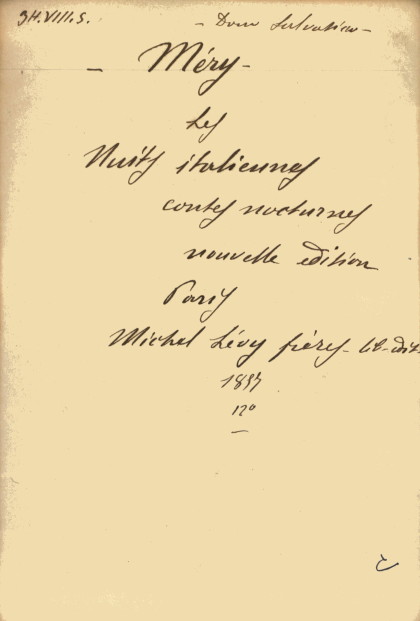 34.VIII.5.
- Dom Salvatico -
- Méry -
Les
Nuits italiennes
contes nocturnes
nouvelle édition
Paris
Michel Lévy frères - lib-édit.
1857
12º